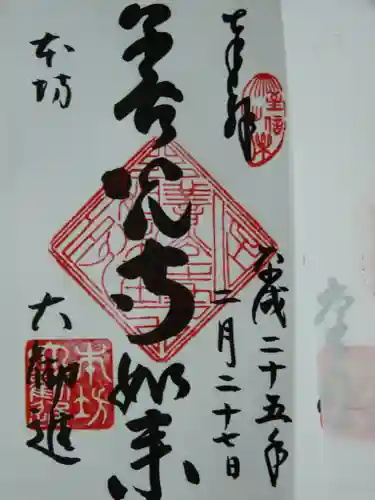 奉拝
平成二十五年
二月二十七日
善光寺如来
本坊
大勧進